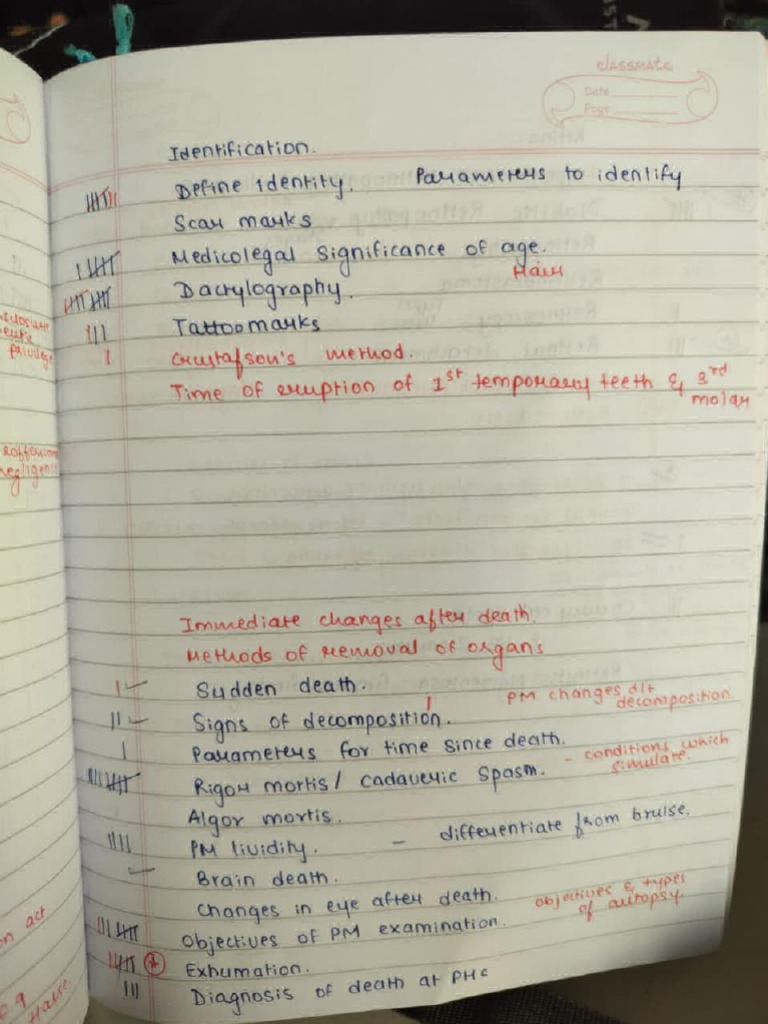 classmate
Date
Page
Identification.
Define Identity. Parameters to identify
Scar marks
Medicolegal significance of age.
Hair
Dactylography.
Tattoo marks
Gustafson's method.
Time of eruption of 1st temporary teeth & 3rd molar
privilege
negligence
Immediate changes after death.
Methods of removal of organs
Sudden death.
PM changes d/t decomposition
Signs of decomposition.
Parameters for time since death.
Rigor mortis / cadaveric spasm. - conditions which simulate.
Algor mortis.
PM lividity. - differentiate from bruise.
Brain death.
Changes in eye after death.
objectives & types of autopsy.
Objectives of PM examination.
Exhumation.
Diagnosis of death at PHC
act